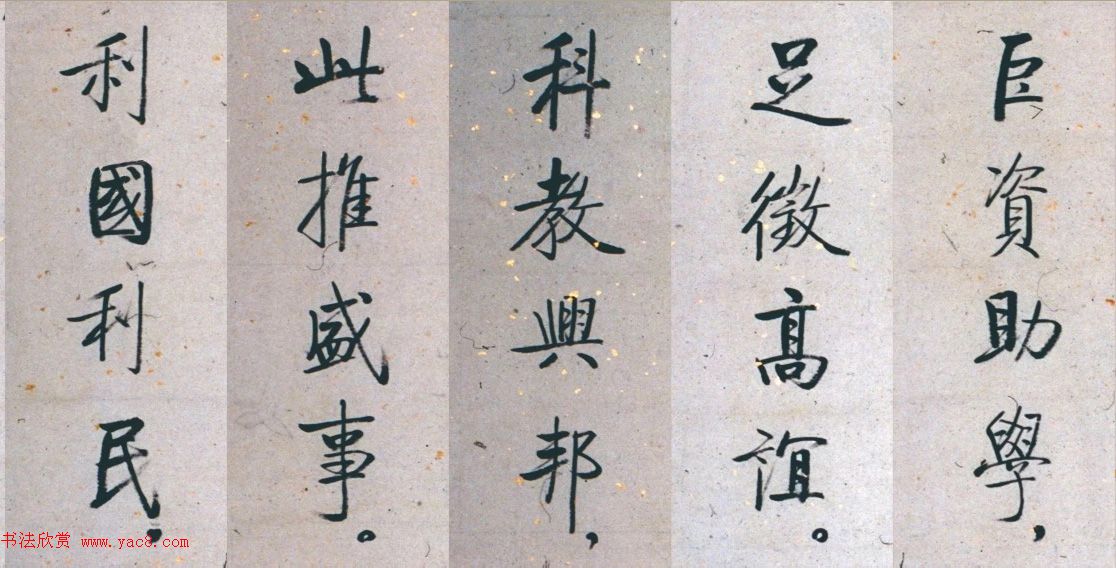 巨資助學，
足徵高誼。
科教興邦，
此推盛事。
利國利民，
书法欣赏 www.yac8.com